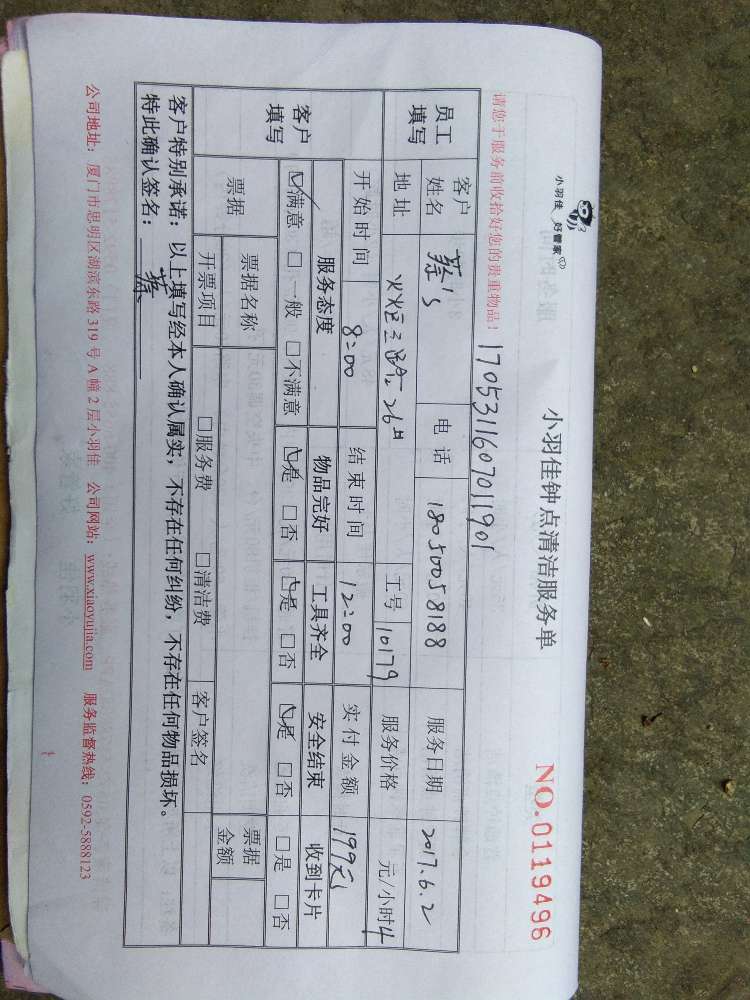 小羽佳 好管家
小羽佳钟点清洁服务单
NO.0119496
请您于服务前收拾好您的贵重物品！ 1705311607011901
员工填写 客户姓名 蔡 电话 18050058188 服务日期 2017.6.2
地址 26 工号 10179 服务价格 元/小时 4
开始时间 8:00 结束时间 12:00 实付金额 199元
客户填写 服务态度 物品完好 工具齐全 安全结束 收到卡片
☑满意 □一般 □不满意 ☑是 □否 ☑是 □否 ☑是 □否 □是 □否
票据 票据名称 票据金额
开票项目 □服务费 □清洁费 客户签名
客户特别承诺：以上填写经本人确认属实，不存在任何纠纷，不存在任何物品损坏。
特此确认签名： 蔡
公司地址：厦门市思明区湖滨东路 319 号 A 幢 2 层小羽佳 公司网站：www.xiaoyujia.com 服务监督热线：0592-5888123